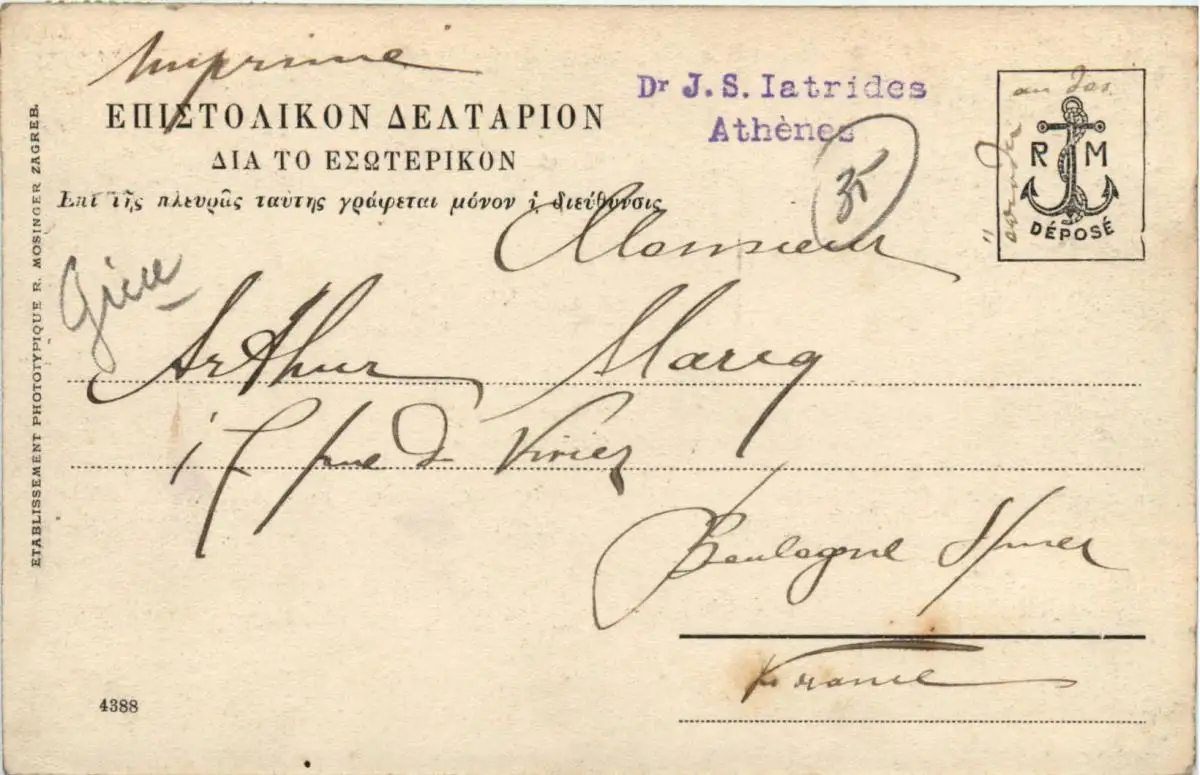 Imprimé
ΕΠΙΣΤΟΛΙΚΟΝ ΔΕΛΤΑΡΙΟΝ
ΔΙΑ ΤΟ ΕΣΩΤΕΡΙΚΟΝ
Ἐπὶ τῆς πλευρᾶς ταύτης γράφεται μόνον ἡ διεύθυνσις
Dr J. S. Iatrides
Athènes
35
au dos
R M
DÉPOSÉ
Grèce
Monsieur
Arthur Marcq
17 rue d Vivier
Boulogne s/mer
France
4388
ETABLISSEMENT PHOTOTYPIQUE R. MOSINGER ZAGREB.